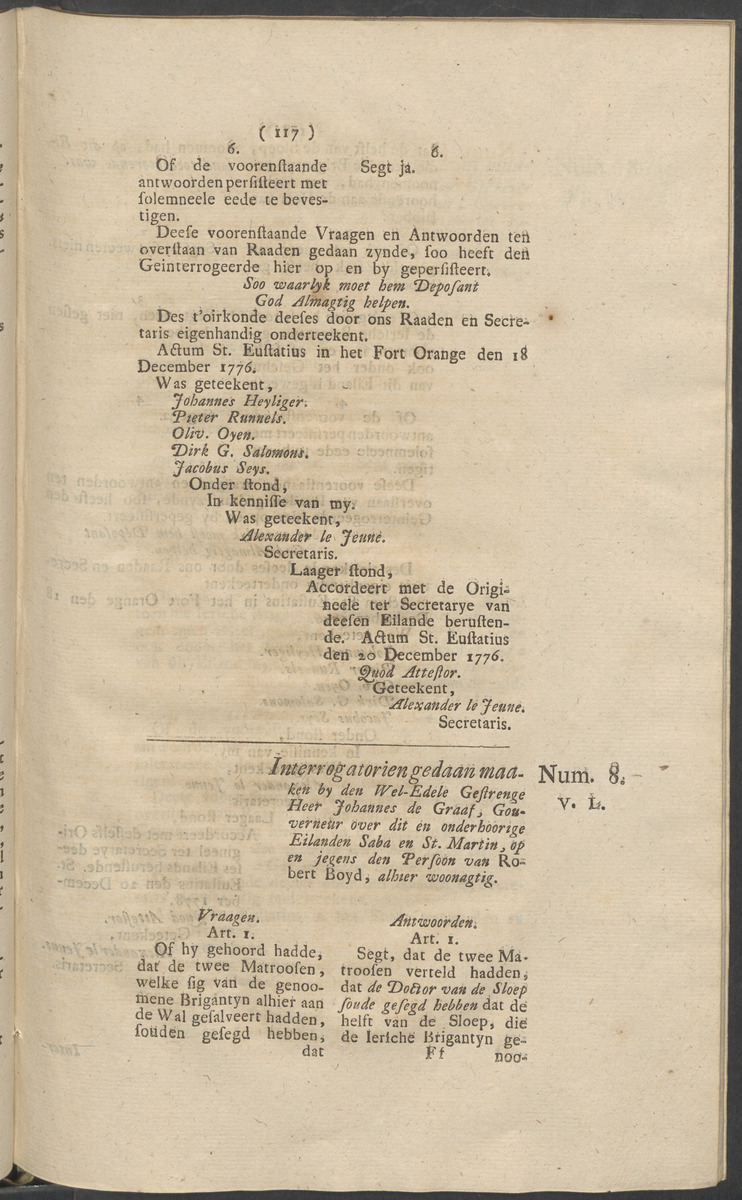 ( 117 )
6.
Of de voorenſtaande
antwoorden perſiſteert met
ſolemneele eede te beves-
tigen.
6.
Segt ja.
Deeſe voorenſtaande Vraagen en Antwoorden ten
overſtaan van Raaden gedaan zynde, ſoo heeft den
Geinterrogeerde hier op en by geperſiſteert.
Soo waarlyk moet hem Depoſant
God Almagtig helpen.
Des t'oirkonde deeſes door ons Raaden en Secre-
taris eigenhandig onderteekent.
Actum St. Euſtatius in het Fort Orange den 18
December 1776.
Was geteekent,
Johannes Heyliger.
Pieter Runnels.
Oliv. Oyen.
Dirk G. Salomons.
Jacobus Seys.
Onder ſtond,
In kenniſſe van my.
Was geteekent,
Alexander le Jeune.
Secretaris.
Laager ſtond,
Accordeert met de Origi-
neele ter Secretarye van
deeſen Eilande beruſten-
de. Actum St. Euſtatius
den 20 December 1776.
Quod Atteſtor.
Geteekent,
Alexander le Jeune.
Secretaris.
Interrogatorien gedaan maa-
ken by den Wel-Edele Geſtrenge
Heer Johannes de Graaf, Gou-
verneur over dit en onderhoorige
Eilanden Saba en St. Martin, op
en jegens den Perſoon van Ro-
bert Boyd, alhier woonagtig.
Num. 8.
V. L.
Vraagen.
Art. 1.
Of hy gehoord hadde,
dat de twee Matrooſen,
welke ſig van de genoo-
mene Brigantyn alhier aan
de Wal geſalveert hadden,
ſouden geſegd hebben,
dat
Antwoorden.
Art. 1.
Segt, dat de twee Ma-
trooſen verteld hadden,
dat de Doctor van de Sloep
ſoude geſegd hebben dat de
helft van de Sloep, die
de Ierſche Brigantyn ge-
Ff
noo-